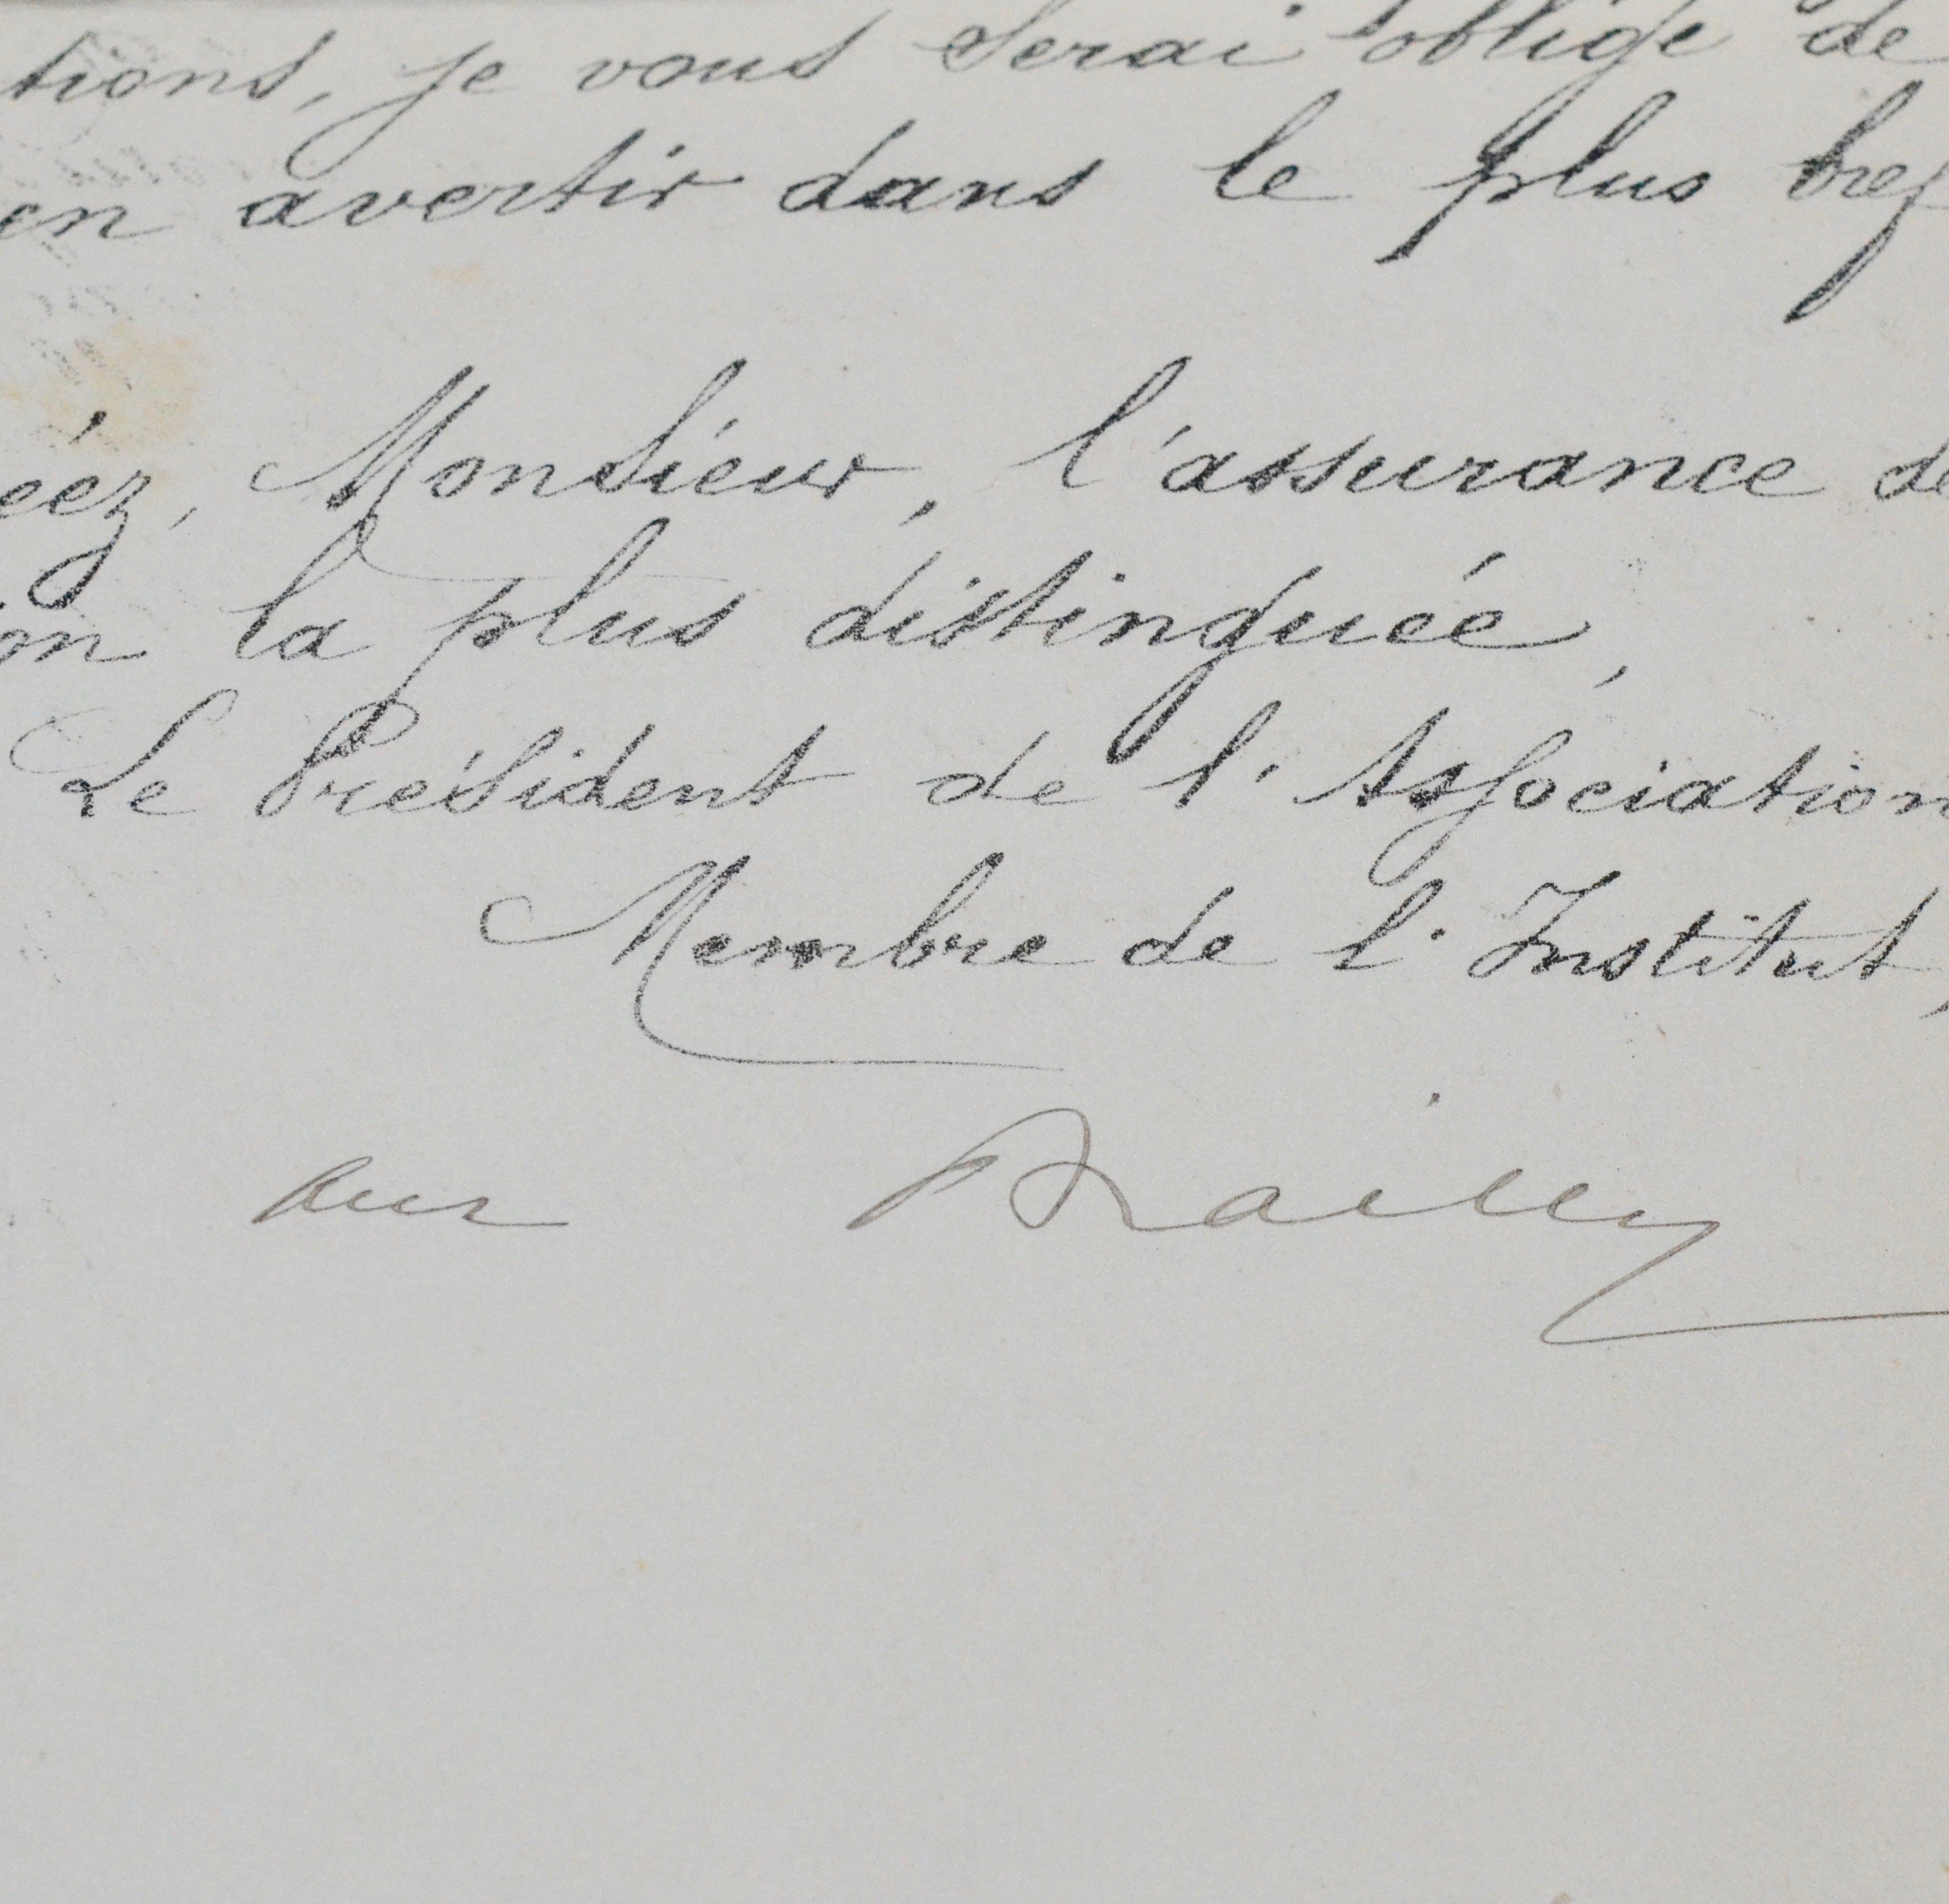 tions, je vous serai obligé de
en avertir dans le plus bref
éez, Monsieur, l'assurance de
on la plus distinguée,
Le Président de l'Association
Membre de l'Institut,
Bailly